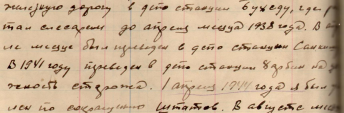 железную дорогу в депо станции Бухеду, где р
тал слесарем до апреля месяца 1938 года. В ап
ле месяце был переведен в депо станции
В 1941 году переведен в депо станции Харбин на до
жность сторожа. 1 апреля 1944 года я был у
лен по сокращению штатов. В августе меся